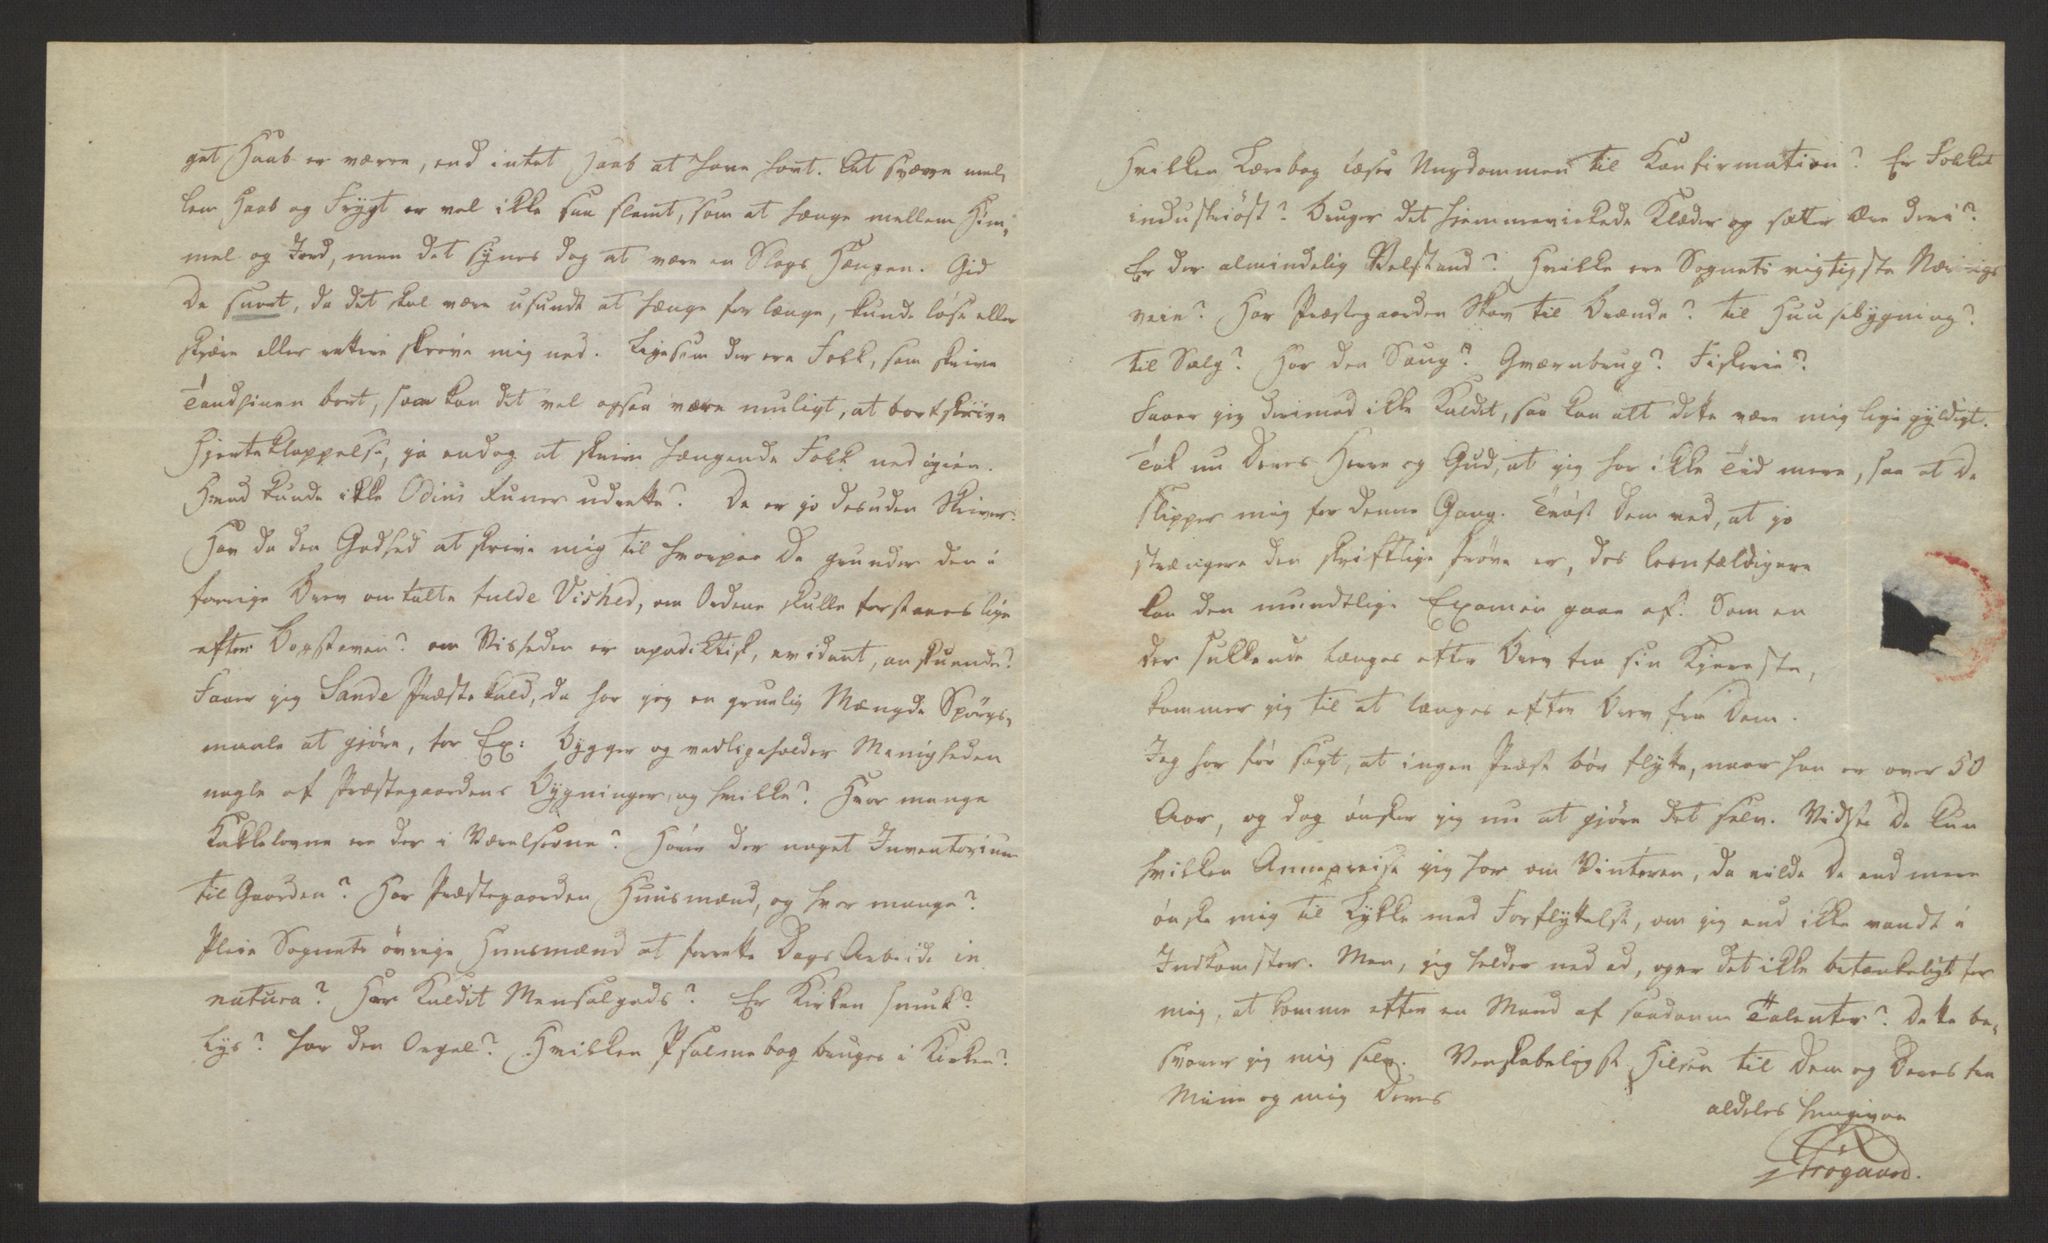 get Haab er værre, end intet Haab at have havt. At svæve mel,
lem Haab og Frygt er vel ikke saa slemt, som at hænge mellem Him,
mel og Jord, men det synes dog at være en Slags Hængen. Gid
De snart, da det skal være usundt at hænge for længe, kunde løse eller
skjære eller rettere skrive mig ned. Ligesom der ere Folk, som skrive
Tandpinen bort, saa kan det vel ogsaa være muligt, at bortskrive
Hjerteklappelse, ja endog at skrive hængende Folk ned igien.
Hvad kunde ikke Odins Runer udrette? De er jo desuden Skriver.
Hav da den Godhed at skrive mig til hvorpaa De grunder den i
forrige Brev omtalte fulde Vished, om Ordene skulle forstaaes lige
efter Bogstaven? om Visheden er apodiktisk, evident, anskuende?
Faaer jeg Sande Præstekald, da har jeg en gruelig Mængde Spørgs,
maale at gjöre, for Ex: Bygger og vedligeholder Menigheden
nogle af Præstegaardens Bygninger, og hvilke? Hvor mange
Kakkelovne ere der i Værelserne? Hörer der noget Inventarium
til Gaarden? Har Præstegaarden Huusmænd, og hvor mange?
Pleie Sognets övrige Huusmænd at forrette Dags Arbeide in
natura? Har Kaldet Mensalgods? Er Kirken smuk?
Lys? har den Orgel? Hvilken Psalmebog bruges i Kirken?
Hvilken Lærebog læser Ungdommen til Konfirmation? Er Folket
industriöst? Bruger det hjemmevirkede Klæder og sætter Ære deri?
Er der almindelig Velstand? Hvilke ere Sognets vigtigste Nærings
veie? Har Præstegaarden Skov til Brænde? til Huusebygning?
til Salg? Har den Saug? Qværnbrug? Fiskerie?
Faaer jeg derimod ikke Kaldet, saa kan alt dette være mig lige gyldigt.
Tak nu Deres Herre og Gud, at jeg har ikke Tid mere, saa at De
slipper mig for denne Gang. Tröst Dem ved, at jo
strængere den skriftlige Pröve er, des leenfældigere
kan den mundtlige Examen gaae af. Som en
der sukkende længes efter Brev fra sin Kjereste,
kommer jeg til at længes efter Brev fra Dem.
Jeg har för sagt, at ingen Præst bör flytte, naar han er over 50
Aar, og dog önsker jeg nu at gjöre det selv. Vidste De kun
hvilken Annexreise jeg har om Vinteren, da vilde De end mere
önske mig til Lykke med Forflyttelse, om jeg end ikke vandt i
Indkomster. Men, jeg holder ved at, oger det ikke betænkeligt for
mig, at komme efter en Mand af saadanne Talenter? Dette be,
svarer jeg mig selv. Venskabeligst Hilsen til Dem og Deres fra
Mine og mig Deres
aldeles hengivne
Frögaard.